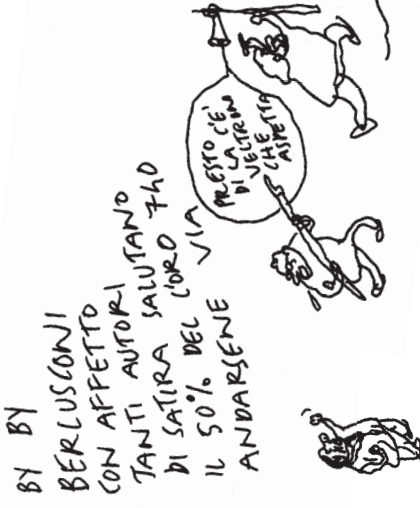 BY BY
BERLUSCONI
CON AFFETTO
TANTI AUTORI
DI SATIRA SALUTANO
IL 50% DEL LORO 740
ANDARSENE VIA
PRESTO C'È
DI LA
VELTRONI
CHE
ASPETTA